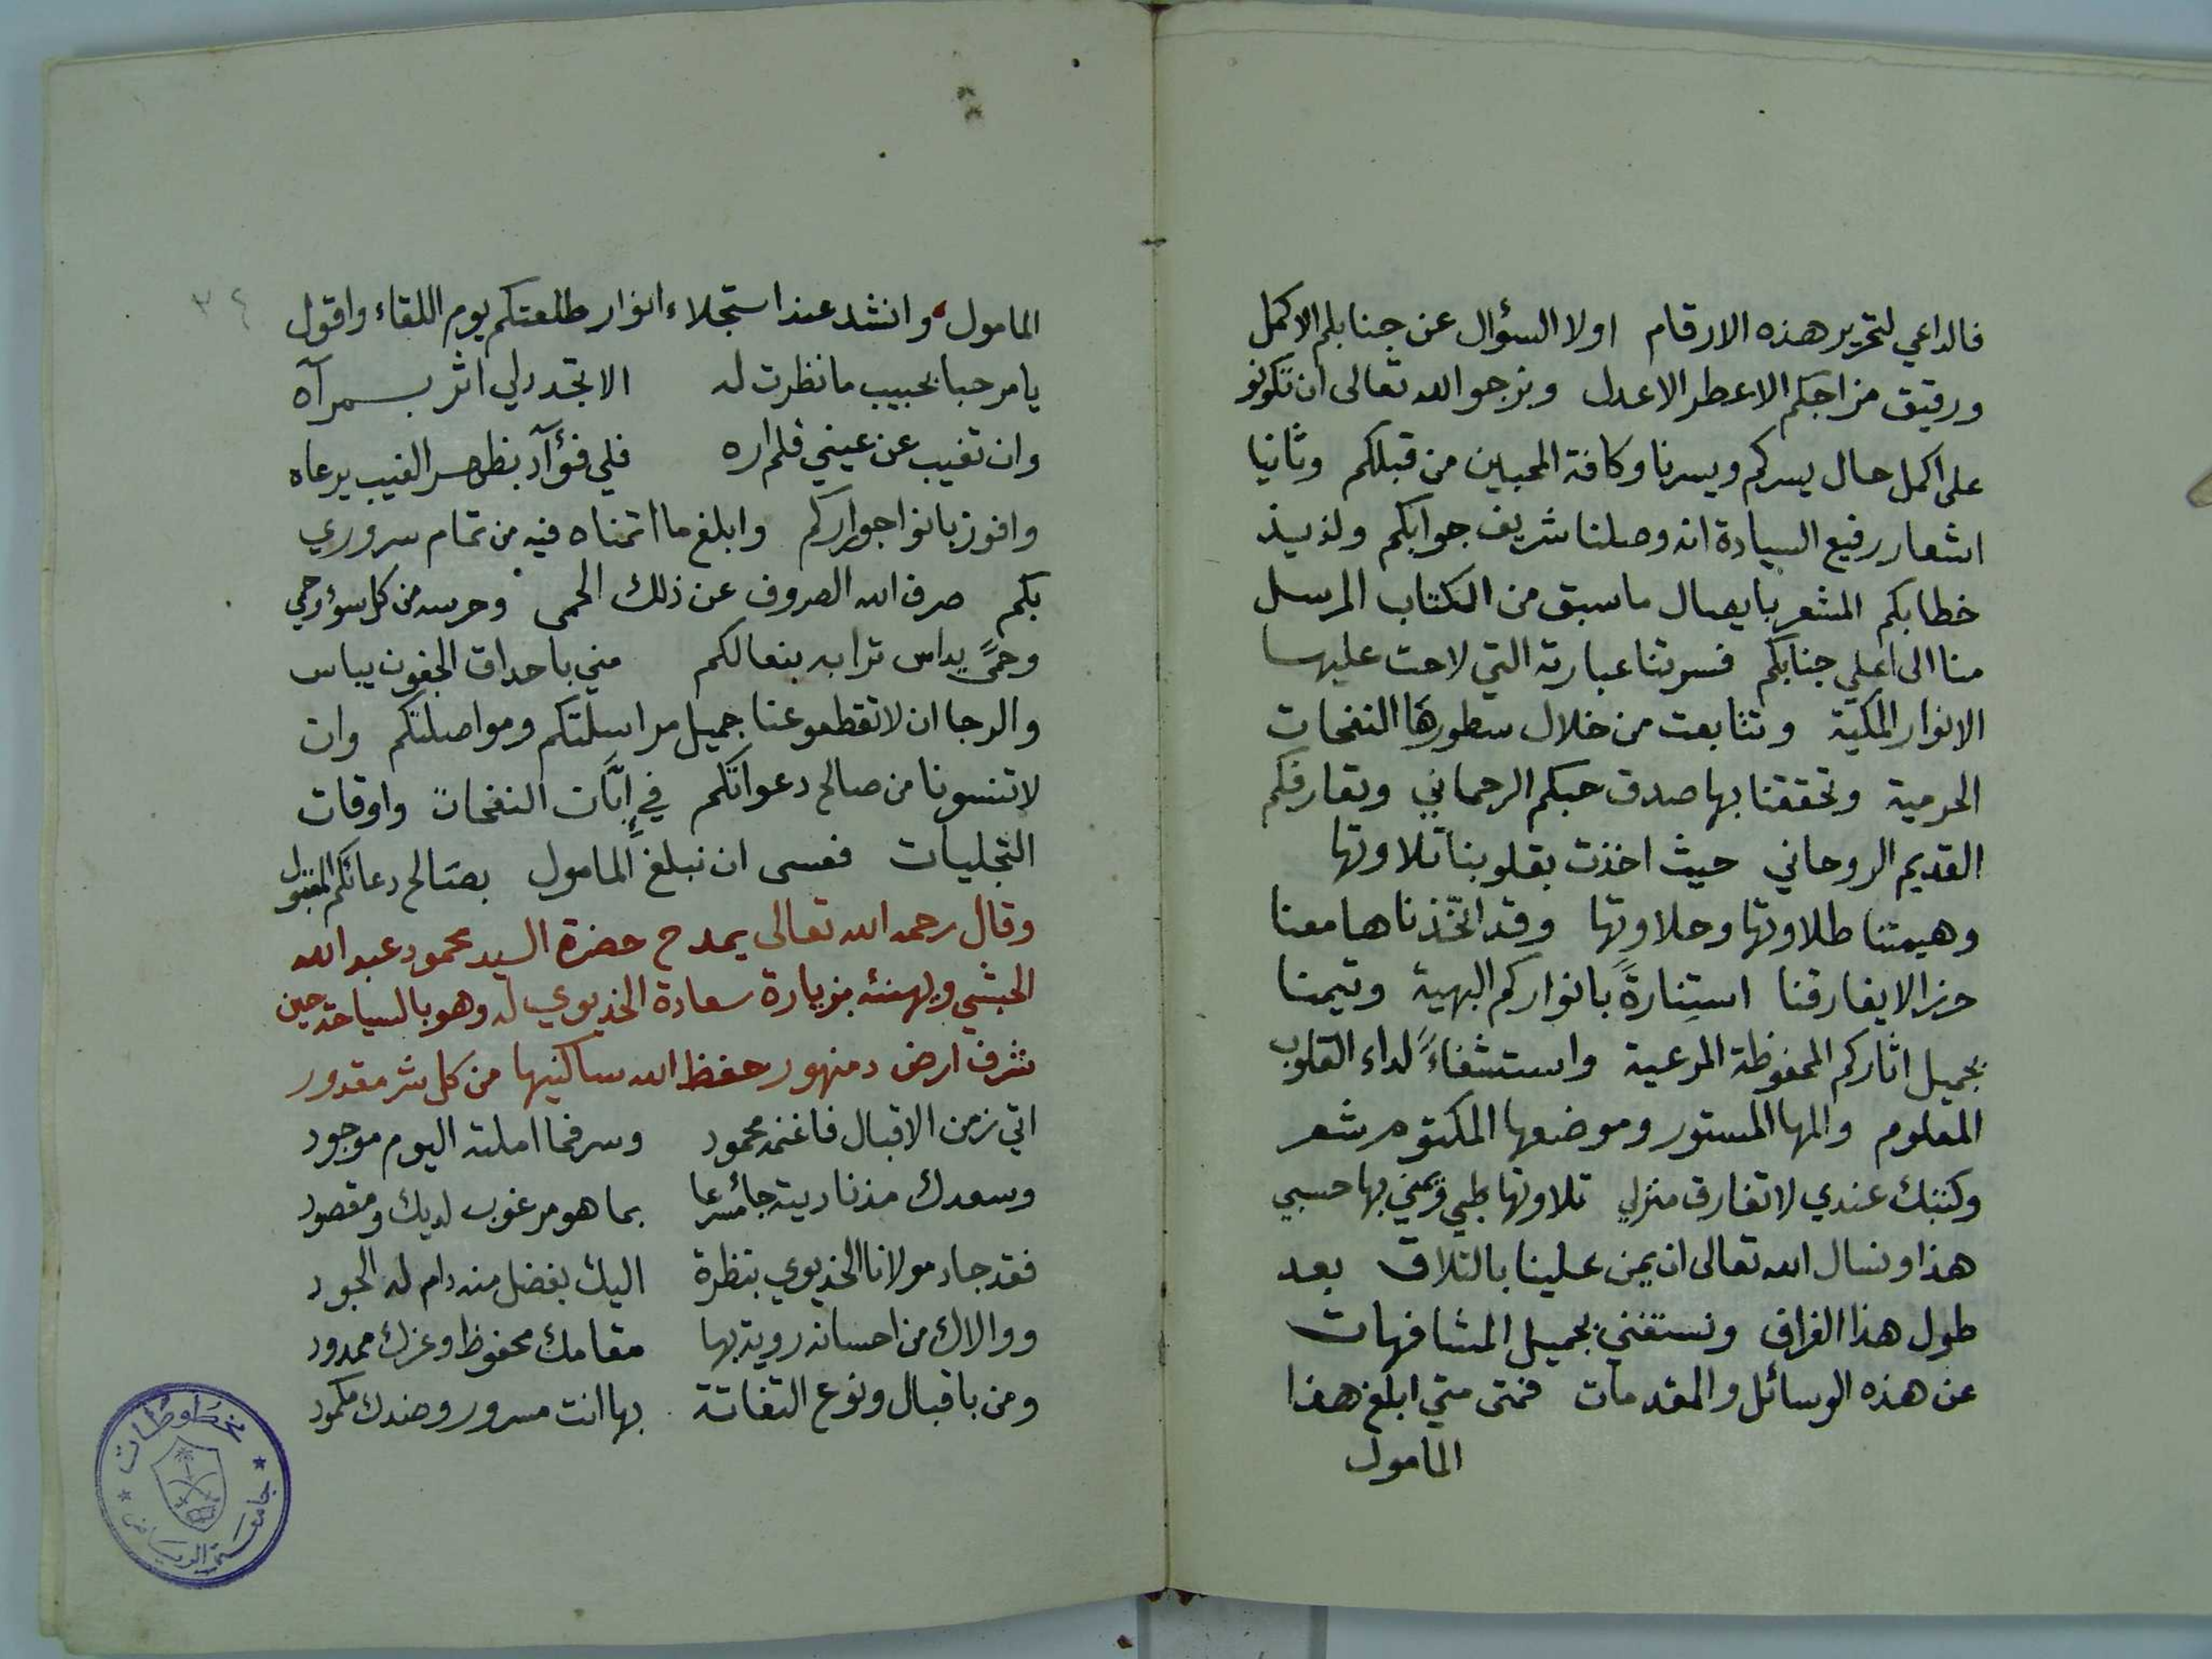 فالداعي لتحرير هذه الارقام اولا السؤال عن جنابكم الاكمل
ورقيق مزاجكم الاعطر الاعدل ونرجو الله تعالى ان تكونو
على اكمل حال يسركم ويسرنا وكافة المحبين من قبلكم وثانيا
اشعار رفيع السيادة انه وصلنا شريف جوابكم ولذيذ
خطابكم المشعر بايصال ما سبق من الكتاب المرسل
منا الى اعلي جنابكم فسرتنا عبارته التي لاحت عليها
الانوار المكية وتتابعت من خلال سطورها النفحات
الحرمية وتحققنا بها صدق حبكم الرحماني وتعارفكم
القديم الروحاني حيث اخذت بقلوبنا تلاوتها
وهيمتنا طلاوتها وحلاوتها وقد اتخذناها معنا
حرزا لا يفارقنا استنارةً بانواركم البهية وتيمنا
بجميل اثاركم المحفوظة المرعية واستشفاءً لداء القلوب
المعلوم والمها المستور وموضعها المكتوم شعر
وكتبك عندي لا تفارق منزلي تلاوتها طبي ويمني بها حسبي
هذا ونسال الله تعالى ان يمن علينا بالتلاق بعد
طول هذا الفراق ونستغني بجميل المشافهات
عن هذه الوسائل والمقدمات فمتى متي ابلغ هذا
المامول
المامول وانشد عند استجلاء انوار طلعتكم يوم اللقاء واقول
٣٤
يا مرحبا بحبيب ما نظرت له الا تجدد لي اثر بسمرآه
وان تغيب عن عيني فلم اره فلي فؤآد بظهر الغيب يرعاه
وافوز بانوا جواركم وابلغ ما اتمناه فيه من تمام سروري
بكم صرف الله الصروف عن ذلك الحمى وحرسه من كل سؤ وحمي
وحمىً يداس ترابه بنعالكم مني باحداق الجفون يباس
والرجا ان لا تقطعو عنا جميل مراسلتكم ومواصلتكم وان
لا تنسونا من صالح دعواتكم في ابّان النفحات واوقات
التجليات فعسى ان نبلغ المامول بصالح دعائكم المقبول
وقال رحمه الله تعالى يمدح حضرة السيد محمود عبد الله
الحبشي ويهنئه بزيارة سعادة الخديوي له وهو بالسياحة حين
شرف ارض دمنهور حفظ الله ساكنيها من كل شر مقدور
اتي زمن الاقبال فاغنمه محمود وسر فما املته اليوم موجود
وسعدك مذ ناديته جائ مسرعا بما هو مرغوب لديك ومقصود
فقد جاد مولانا الخديوي بنظرة اليك بفضل منه دام له الجود
ووالاك من احسانه روية بها مقامك محفوظ وعزك ممدود
ومن باقبال ونوع التفاتة بها انت مسرور وضدك مكمود
مخطوطات
جامعة الرياض